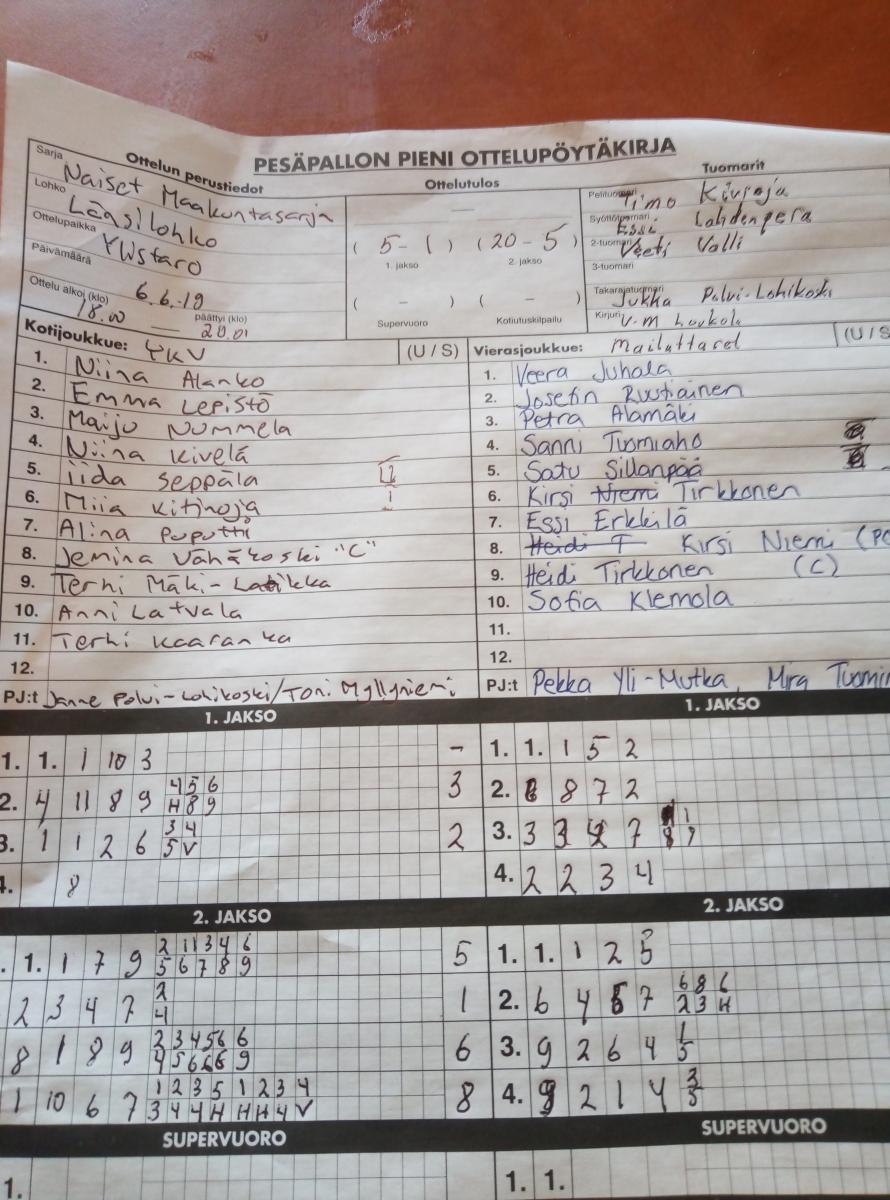 PESÄPALLON PIENI OTTELUPÖYTÄKIRJA
Ottelun perustiedot
Sarja Naiset Maakuntasarja
Lohko Länsilohko
Ottelupaikka Ylistaro
Päivämäärä 6.6.-19
Ottelu alkoi (klo) 18.00 päättyi (klo) 20.01
Ottelutulos
( 5 - 1 ) ( 20 - 5 )
1. jakso 2. jakso
( - ) ( - )
Supervuoro Kotiutuskilpailu
Tuomarit
Pelituomari Timo Kivioja
Syöttötuomari Essi Lahdenperä
2-tuomari Veeti Valli
3-tuomari
Takarajatuomari Jukka Polvi-Lohikoski
Kirjuri V-M
Kotijoukkue: YKV (U / S)
1. Niina Alanko
2. Emma Lepistö
3. Maiju Nummela
4. Niina Kivelä
5. iida Seppälä
6. Miia Kitinoja
7. Alina Puputti
8. Jemina Vähäkoski "C"
9. Terhi Mäki-Latikka
10. Anni Latvala
11. Terhi Kaaranka
12.
PJ:t Janne Polvi-Lohikoski/Toni Myllyniemi
Vierasjoukkue: Mailattaret (U / S
1. Veera Juhola
2. Josefin Ruutiainen
3. Petra Alamäki
4. Sanni Tuomiaho
5. Satu Sillanpää
6. Kirsi Niemi Tirkkonen
7. Essi Erkkilä
8. Heidi T Kirsi Niemi (PC
9. Heidi Tirkkonen (C)
10. Sofia Klemola
11.
12.
PJ:t Pekka Yli-Mutka, Mira Tuomin
1. JAKSO
1. 1. 1 10 3 -
2. 4 11 8 9 4 5 6 3
H 8 9
3. 1 1 2 6 3 4 2
5 V
4. 8
1. JAKSO
1. 1. 1 5 2
2. 8 7 2
3. 3 3 7 1
8 7
4. 2 2 3 4
2. JAKSO
1. 1 7 9 2 1 1 3 4 6 5
5 6 7 8 9
2 3 4 7 2 1
4
8 1 8 9 2 3 4 5 6 6 6
4 5 6 6 6 9
1 10 6 7 1 2 3 5 1 2 3 4 8
3 4 4 H H H 4 V
2. JAKSO
1. 1. 1 2 5
2. 6 4 7 6 8 6
2 3 H
3. 9 2 6 4 1
5
4. 9 2 1 4 3
5
SUPERVUORO
1.
SUPERVUORO
1. 1.